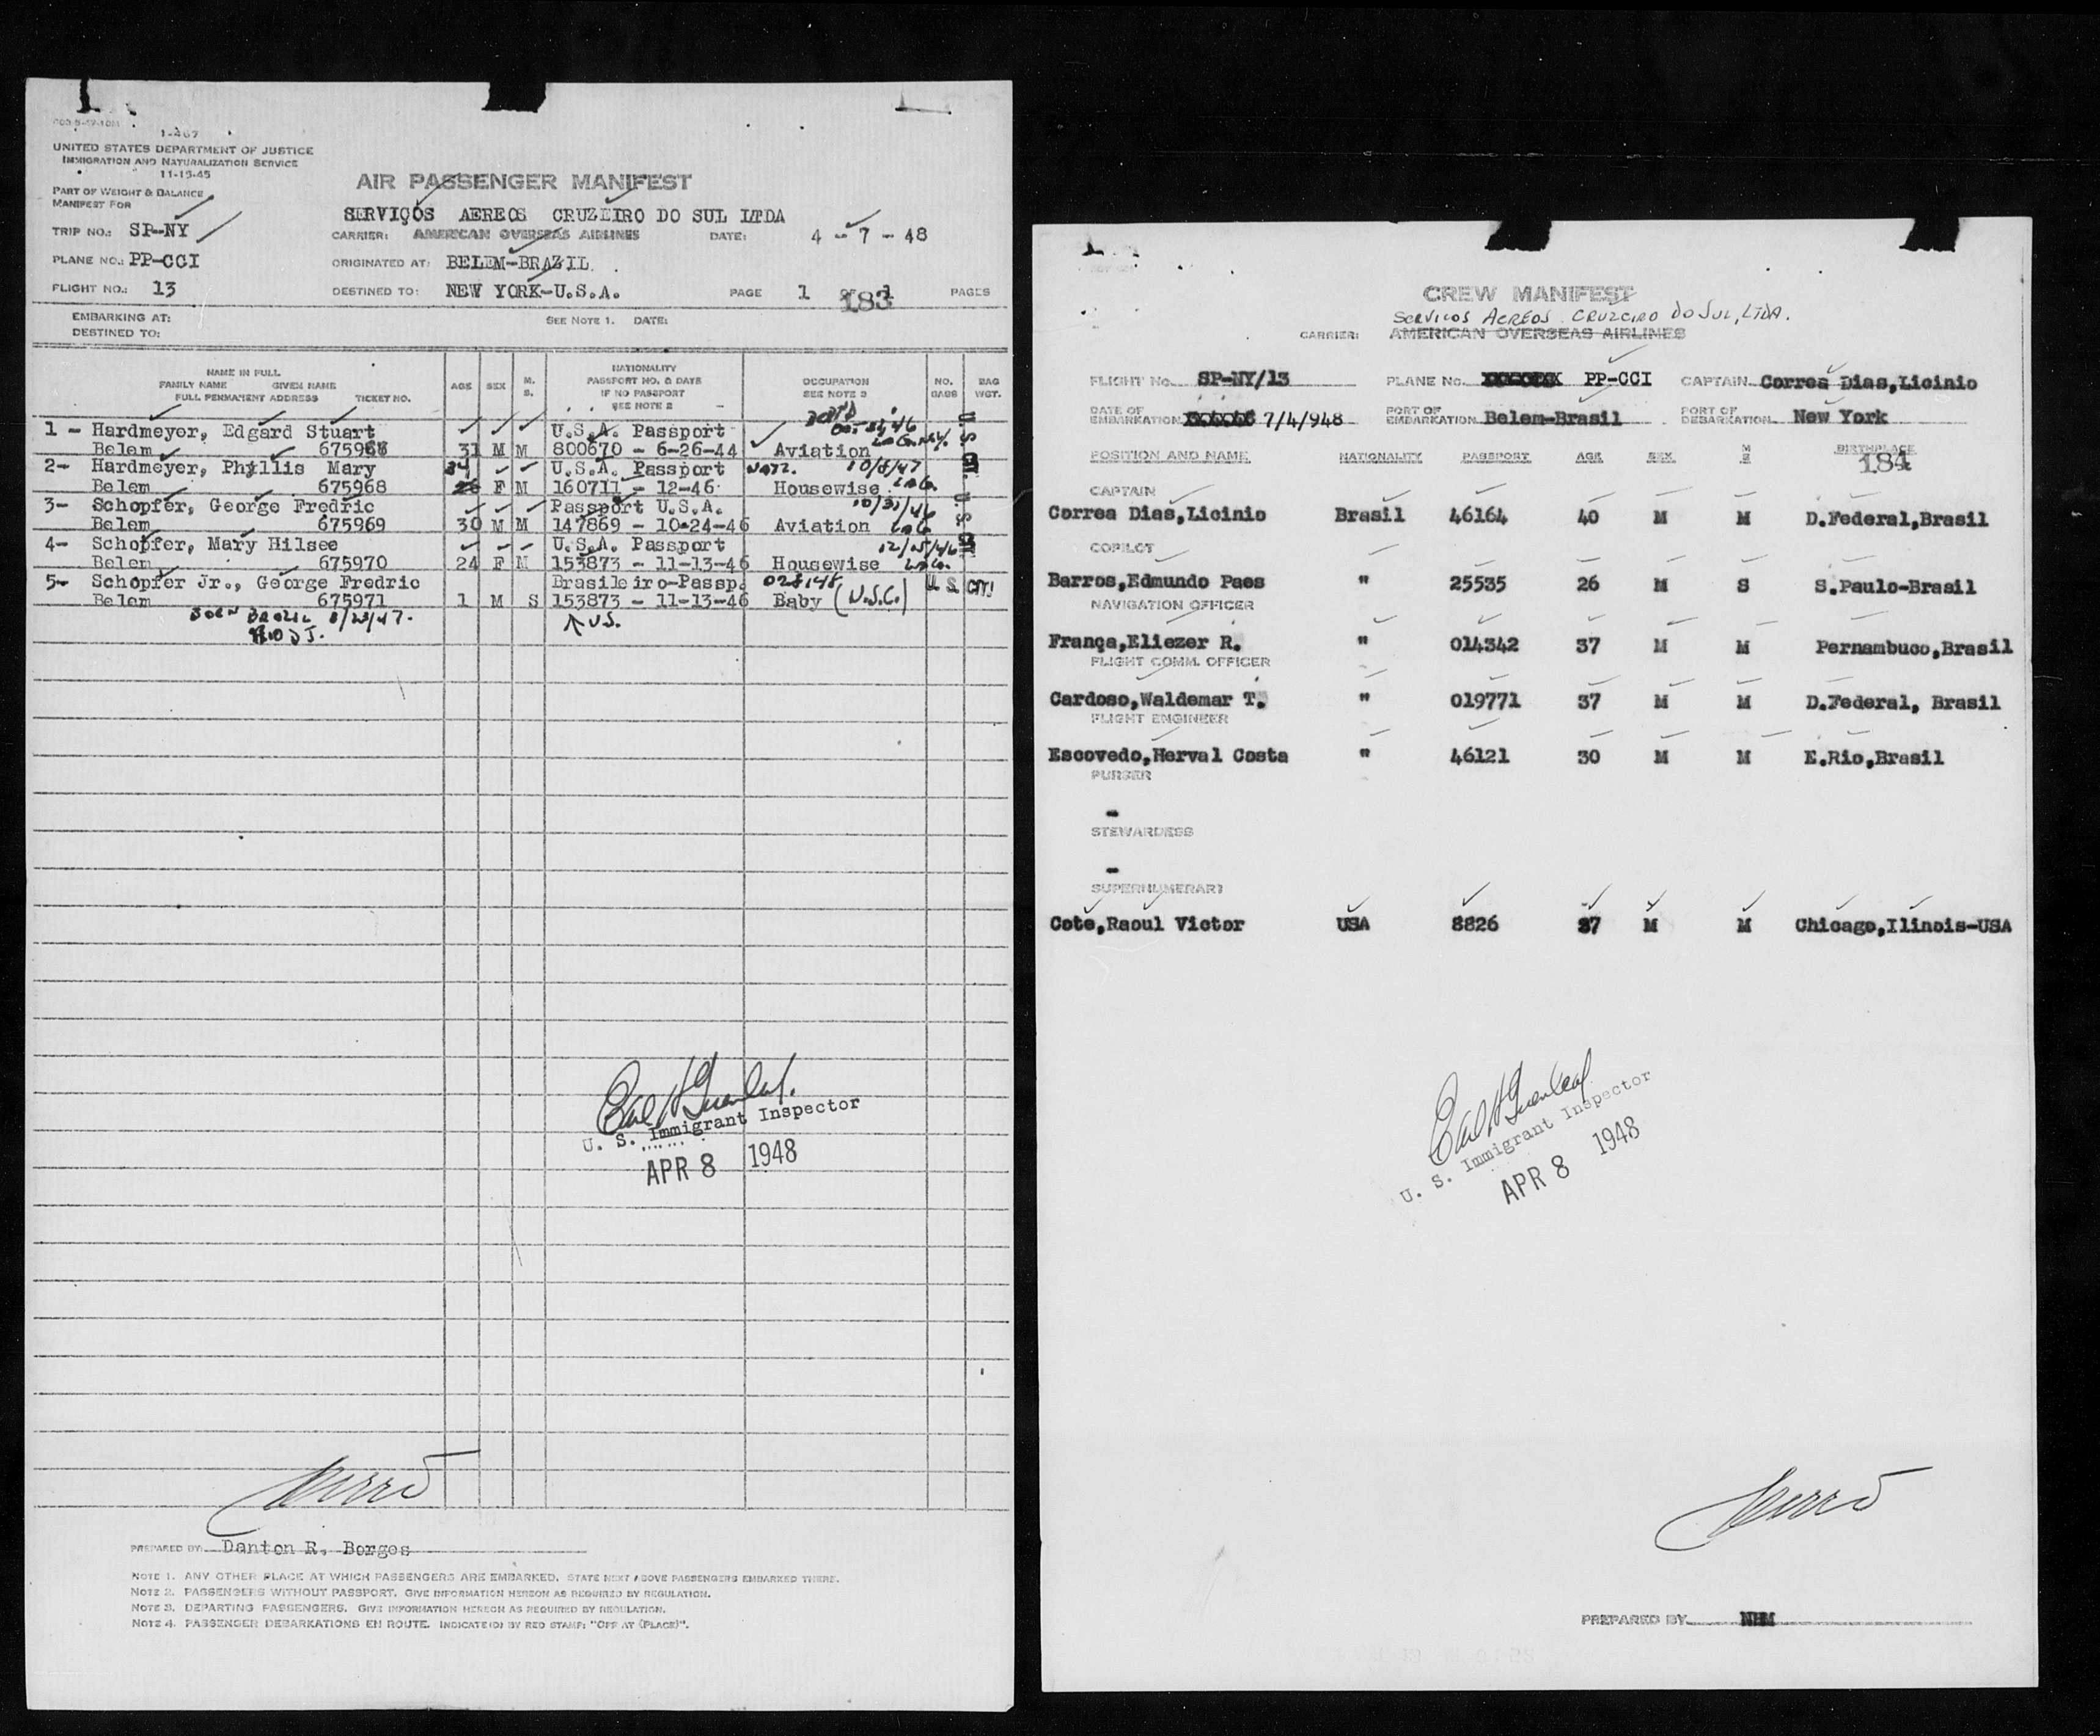 1-467
UNITED STATES DEPARTMENT OF JUSTICE
IMMIGRATION AND NATURALIZATION SERVICE
11-15-45
PART OF WEIGHT & BALANCE
MANIFEST FOR
AIR PASSENGER MANIFEST
SERVIÇOS AEREOS CRUZEIRO DO SUL LTDA
TRIP NO.: SP-NY
CARRIER: AMERICAN OVERSEAS AIRLINES DATE: 4 - 7 - 48
PLANE NO.: PP-CCI
ORIGINATED AT: BELEM-BRAZIL.
FLIGHT NO.: 13
DESTINED TO: NEW YORK-U.S.A. PAGE 1 PAGES
183
EMBARKING AT: SEE NOTE 1. DATE:
DESTINED TO:
NAME IN FULL
FAMILY NAME GIVEN NAME
FULL PERMANENT ADDRESS TICKET NO.
AGE SEX M. S.
NATIONALITY
PASSPORT NO. & DATE
IF NO PASSPORT
SEE NOTE 2
OCCUPATION
SEE NOTE 3
NO. BAGS
BAG WGT.
1 - Hardmeyer, Edgard Stuart U.S.A. Passport
Belem 675967 31 M M 800670 - 6-26-44 Aviation
2- Hardmeyer, Phyllis Mary U.S.A. Passport NATZ. 10/8/47
Belem 675968 F M 160711 - 12-46 Housewise
3- Schopfer, George Fredric Passport U.S.A. 10/31/46
Belem 675969 30 M M 147869 - 10-24-46 Aviation
4- Schopfer, Mary Hilsee U.S.A. Passport
Belem 675970 24 F M 153873 - 11-13-46 Housewise
5- Schopfer Jr., George Fredric Brasileiro-Passp. 028148 U.S. CIT.
Belem 675971 1 M S 153873 - 11-13-46 Baby (U.S.C.)
BORN BRAZIL 8/23/47.
RIO D J.
U.S.
U. S. Immigrant Inspector
APR 8 1948
PREPARED BY: Danton R. Borges
NOTE 1. ANY OTHER PLACE AT WHICH PASSENGERS ARE EMBARKED. STATE NEXT ABOVE PASSENGERS EMBARKED THERE.
NOTE 2. PASSENGERS WITHOUT PASSPORT. GIVE INFORMATION HEREON AS REQUIRED BY REGULATION.
NOTE 3. DEPARTING PASSENGERS. GIVE INFORMATION HEREON AS REQUIRED BY REGULATION.
NOTE 4. PASSENGER DEBARKATIONS EN ROUTE. INDICATE(D) BY RED STAMP: "OFF AT (PLACE)".
CREW MANIFEST
SERVICOS AEREOS CRUZEIRO DO SUL, LTDA.
CARRIER: AMERICAN OVERSEAS AIRLINES
FLIGHT No. SP-NY/13 PLANE No. PP-CCI CAPTAIN Correa Dias,Licinio
DATE OF EMBARKATION 7/4/948 PORT OF EMBARKATION Belem-Brasil PORT OF DEBARKATION New York
POSITION AND NAME NATIONALITY PASSPORT AGE SEX M S BIRTHPLACE
184
CAPTAIN
Correa Dias,Licinio Brasil 46164 40 M M D.Federal,Brasil
COPILOT
Barros,Edmundo Paes " 25535 26 M S S.Paulo-Brasil
NAVIGATION OFFICER
França,Eliezer R. " 014342 37 M M Pernambuco,Brasil
FLIGHT COMM. OFFICER
Cardoso,Waldemar T. " 019771 37 M M D.Federal, Brasil
FLIGHT ENGINEER
Escovedo,Herval Costa " 46121 30 M M E.Rio,Brasil
PURSER
-
STEWARDESS
-
SUPERNUMERARY
Cote,Raoul Victor USA 8826 37 M M Chicago,Ilinois-USA
U. S. Immigrant Inspector
APR 8 1948
PREPARED BY NHM